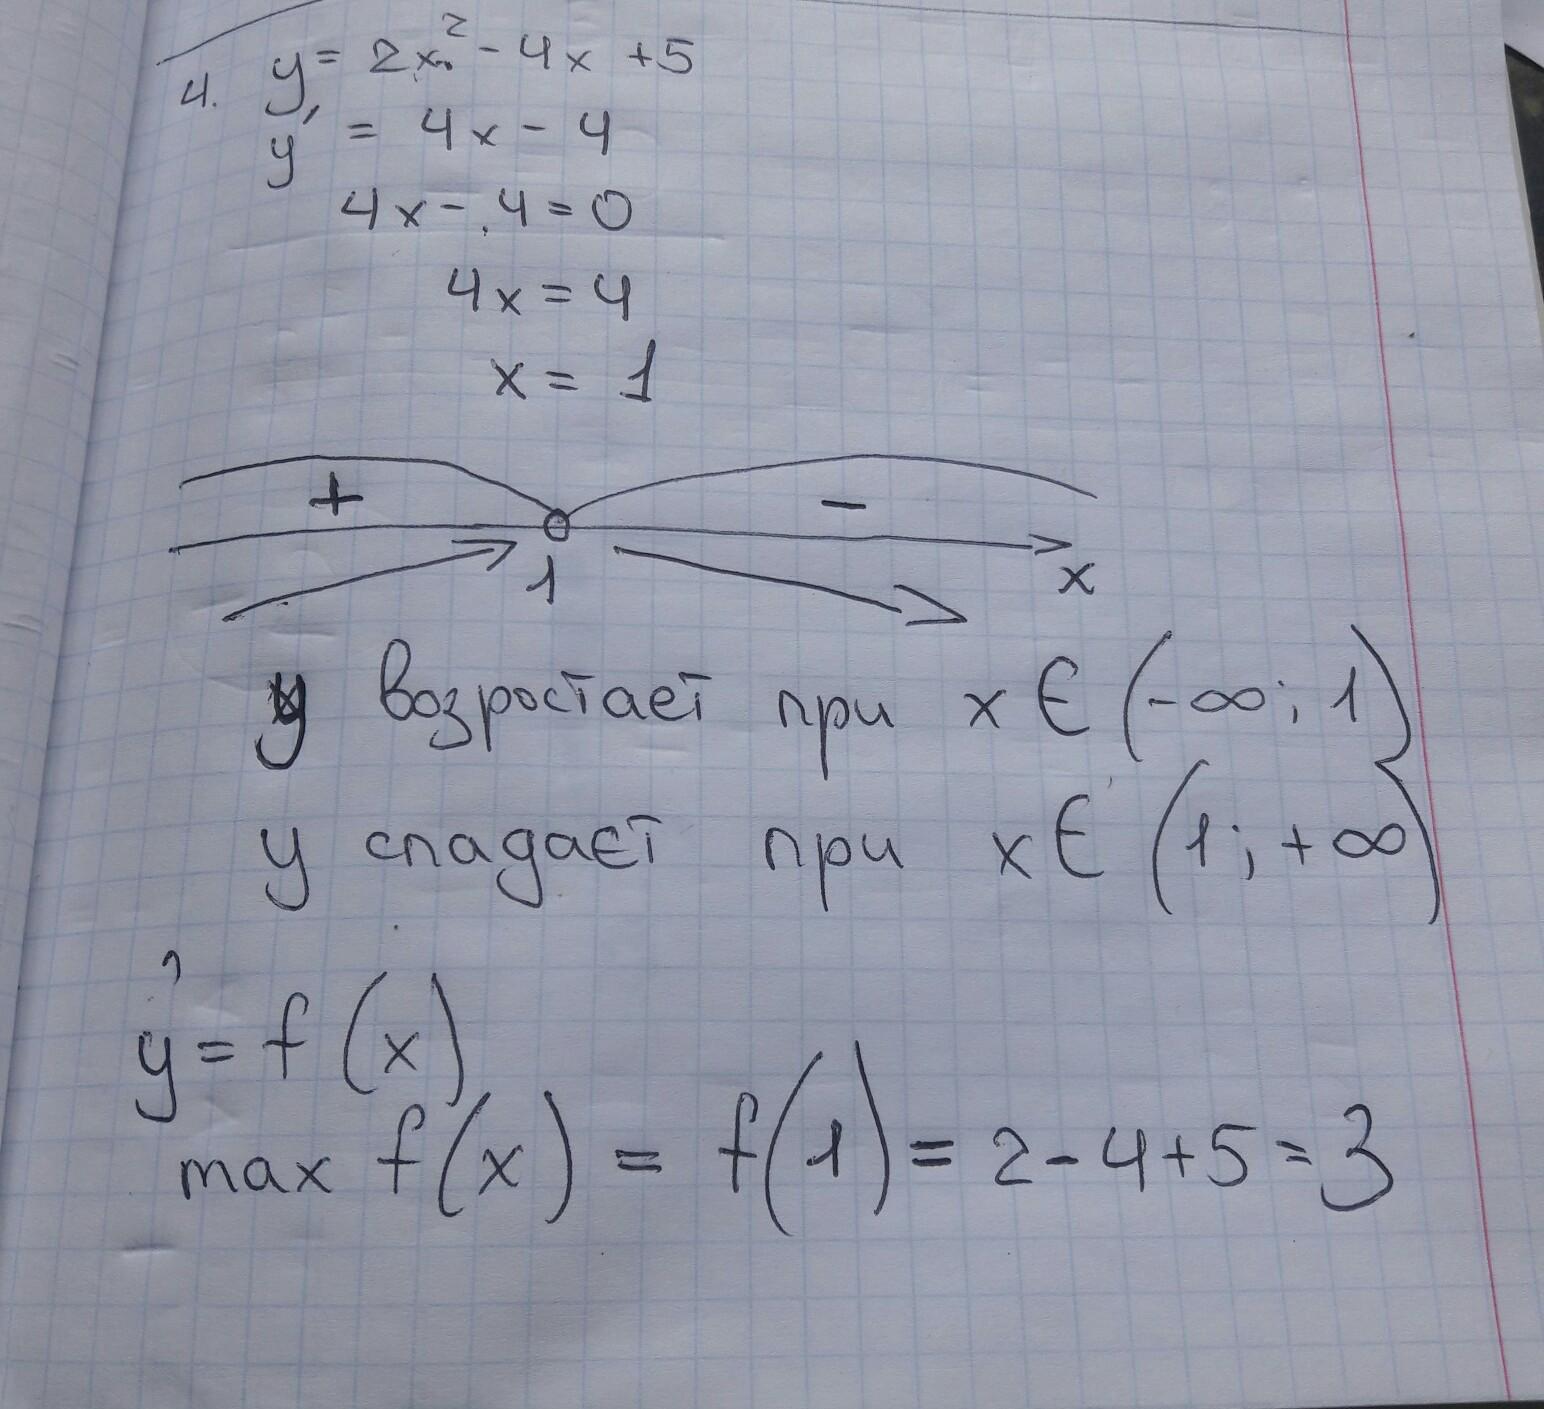 4. y = 2x² - 4x + 5
y' = 4x - 4
4x - 4 = 0
4x = 4
x = 1
+ -
1 x
y возростает при x ∈ (-∞; 1)
y спадает при x ∈ (1; +∞)
y = f(x)
max f(x) = f(1) = 2 - 4 + 5 = 3